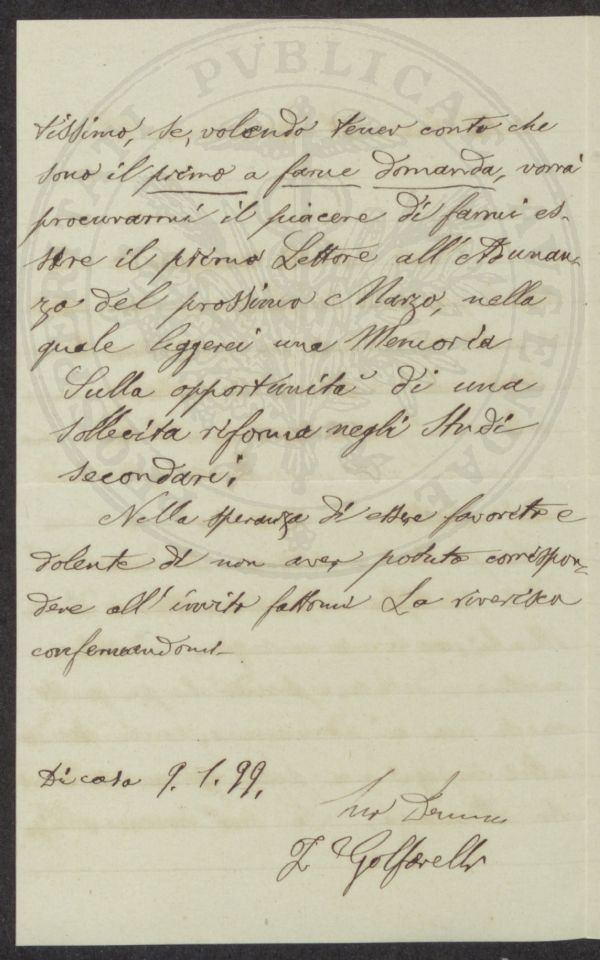 tissimo, se, volendo tener conto che
sono il primo a farne domanda, vorrà
procurarmi il piacere di farmi es-
sere il primo Lettore all'Adunan-
za del prossimo Marzo, nella
quale leggerei una Memoria
Sulla opportunità di una
sollecita riforma negli Studi
secondari.
Nella speranza di essere favorito e
dolente di non aver potuto corrispon-
dere all'invito fattomi La riverisco
confermandomi
Di casa 9. 1. 99.
Suo Devmo
Golfarelli